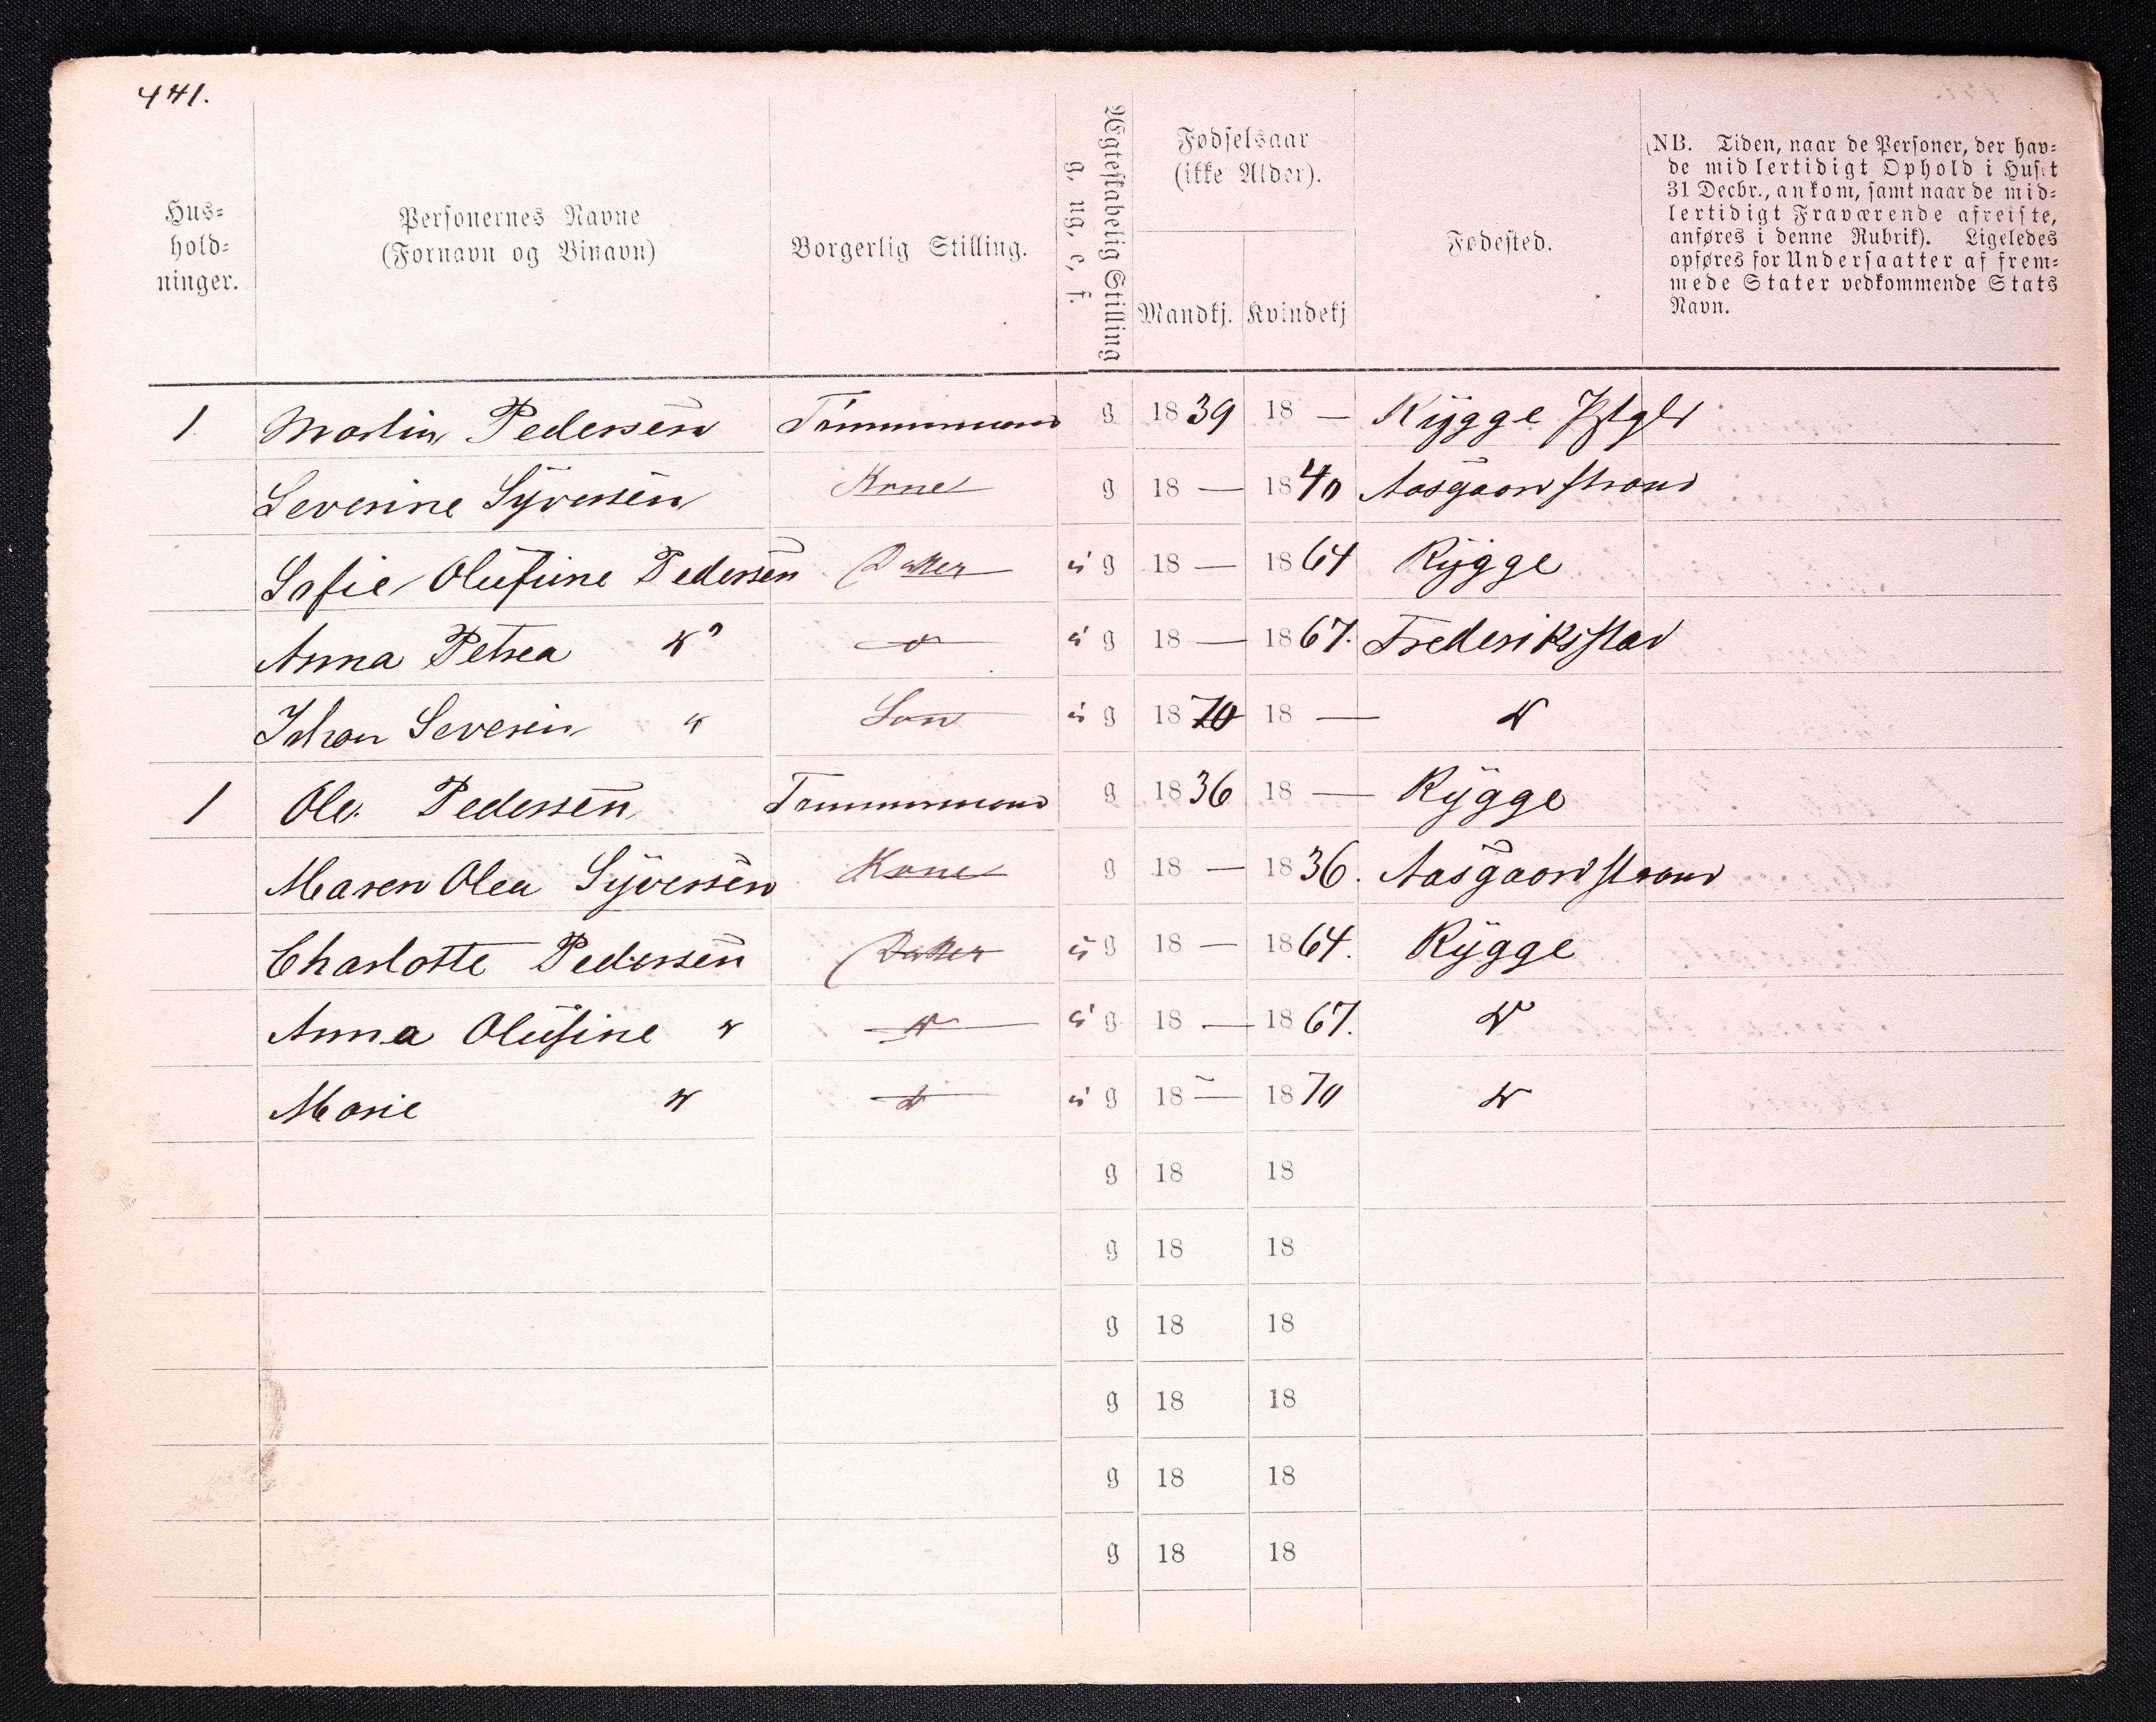 441.
Hus=
hold=
ninger.
Personernes Navne
(Fornavn og Binavn)
Borgerlig Stilling.
Ægteskabelig Stilling
g, ug, e, f.
Fødselsaar
(ikke Alder).
Mandkj. Kvindekj
Fødested.
(NB. Tiden, naar de Personer, der hav=
de midlertidigt Ophold i Huset
31 Decbr., ankom, samt naar de mid=
lertidigt Fraværende afreiste,
anføres i denne Rubrik). Ligeledes
opføres for Undersaatter af frem=
mede Stater vedkommende Stats
Navn.
1 Martin Pedersen Tømmermand g 1839 18 — Rygge
Severine Syversen Kone g 18 — 1840 Aasgaardstrand
Sofie Olufine Pedersen Datter ug 18 — 1864 Rygge
Anna Petrea do do ug 18 — 1867. Frederiksstad
Johan Severin " Søn ug 1870 18 — do
1 Ole Pedersen Tømmermand g 1836 18 — Rygge
Maren Olea Syversen Kone g 18 — 1836. Aasgaardstrand
Charlotte Pedersen Datter ug 18 — 1864. Rygge
Anna Olufine " do ug 18 — 1867. do
Marie " do ug 18 — 1870 do
g 18 18
g 18 18
g 18 18
g 18 18
g 18 18
g 18 18